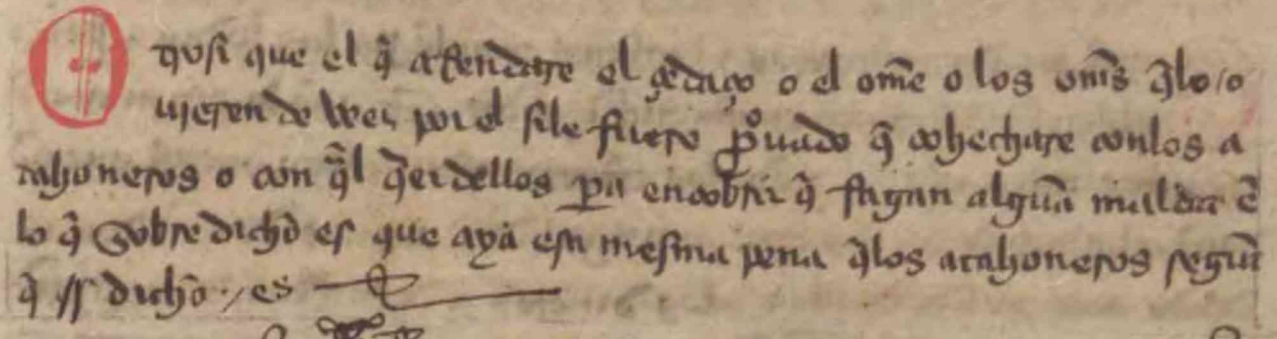 Otrosi que el q̃ arrendare el çedaço o el om̃e o los om̃s q̃lo o
uieren de veer por el sile fuere prouado q̃ cohechare conlos a
tahoneros o con q̃l q̃er dellos pa encobrir q̃ fagan algũa maldat ẽ
lo q̃ sobre dicho es que aya esta mesma pena q̃los atahoneros segũt
q̃ ss dicho es